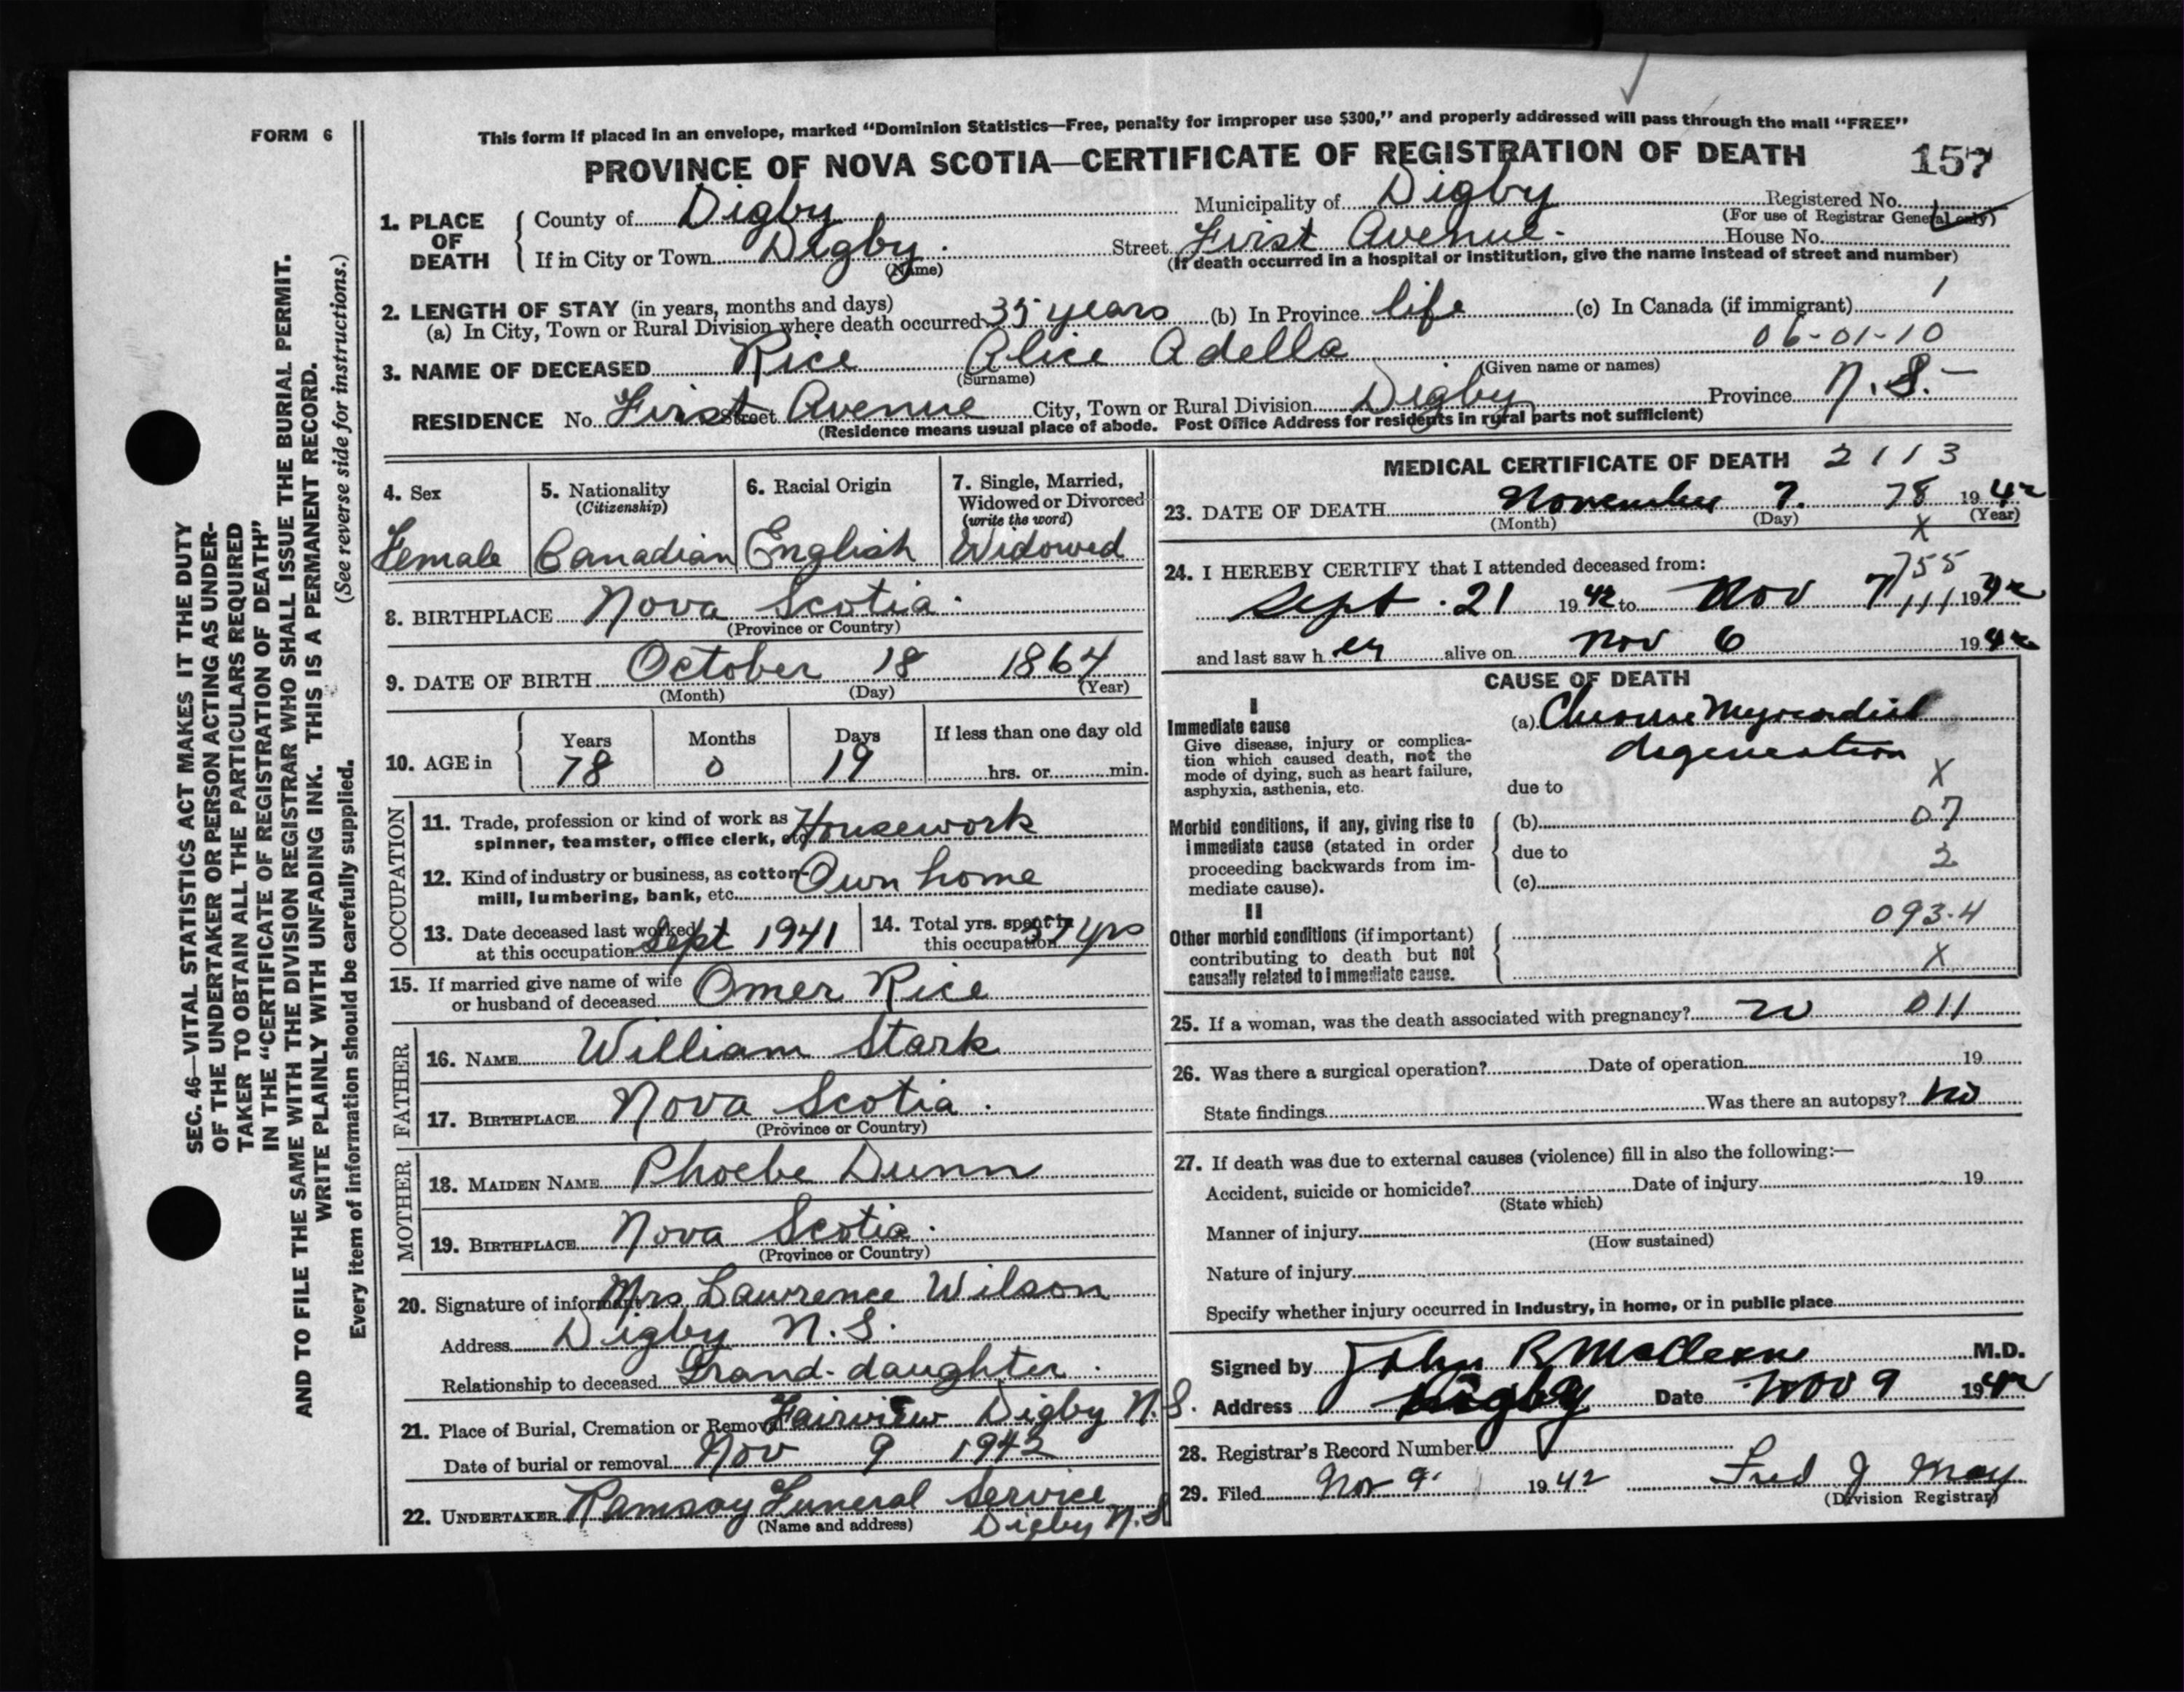 FORM 6
This form if placed in an envelope, marked “Dominion Statistics—Free, penalty for improper use $300,” and properly addressed will pass through the mail “FREE”
PROVINCE OF NOVA SCOTIA—CERTIFICATE OF REGISTRATION OF DEATH
157
SEC. 46—VITAL STATISTICS ACT MAKES IT THE DUTY
OF THE UNDERTAKER OR PERSON ACTING AS UNDER-
TAKER TO OBTAIN ALL THE PARTICULARS REQUIRED
IN THE “CERTIFICATE OF REGISTRATION OF DEATH”
AND TO FILE THE SAME WITH THE DIVISION REGISTRAR WHO SHALL ISSUE THE BURIAL PERMIT.
WRITE PLAINLY WITH UNFADING INK. THIS IS A PERMANENT RECORD.
Every item of information should be carefully supplied. (See reverse side for instructions.)
1. PLACE OF DEATH
County of Digby Municipality of Digby Registered No.
(For use of Registrar General only)
If in City or Town Digby. Street First Avenue. House No.
(Name) (If death occurred in a hospital or institution, give the name instead of street and number)
2. LENGTH OF STAY (in years, months and days)
(a) In City, Town or Rural Division where death occurred 35 years (b) In Province life (c) In Canada (if immigrant) 1
06-01-10
3. NAME OF DECEASED Rice Alice Adella
(Surname) (Given name or names)
RESIDENCE No. First Street Avenue City, Town or Rural Division Digby Province N.S.
(Residence means usual place of abode. Post Office Address for residents in rural parts not sufficient)
4. Sex
Female
5. Nationality
(Citizenship)
Canadian
6. Racial Origin
English
7. Single, Married,
Widowed or Divorced
(write the word)
Widowed
8. BIRTHPLACE Nova Scotia.
(Province or Country)
9. DATE OF BIRTH October 18 1864
(Month) (Day) (Year)
10. AGE in
Years Months Days If less than one day old
78 0 19 hrs. or min.
OCCUPATION
11. Trade, profession or kind of work as
spinner, teamster, office clerk, etc. Housework
12. Kind of industry or business, as cotton-
mill, lumbering, bank, etc. Own home
13. Date deceased last worked
at this occupation Sept 1941
14. Total yrs. spent in
this occupation yrs
15. If married give name of wife
or husband of deceased Omer Rice
FATHER
16. NAME William Stark
17. BIRTHPLACE Nova Scotia.
(Province or Country)
MOTHER
18. MAIDEN NAME Phoebe Dunn
19. BIRTHPLACE Nova Scotia.
(Province or Country)
20. Signature of informant Mrs Lawrence Wilson
Address Digby N.S.
Relationship to deceased Grand-daughter.
21. Place of Burial, Cremation or Removal Fairview Digby N.S.
Date of burial or removal Nov 9 1942
22. UNDERTAKER Ramsay Funeral Service
(Name and address) Digby N.S
MEDICAL CERTIFICATE OF DEATH 2113
23. DATE OF DEATH November 7. 78 1942
(Month) (Day) (Year)
X
24. I HEREBY CERTIFY that I attended deceased from:
755
Sept. 21 1942 to Nov 7 111 1942
and last saw her alive on Nov 6 1942
CAUSE OF DEATH
I
Immediate cause
Give disease, injury or complica-
tion which caused death, not the
mode of dying, such as heart failure,
asphyxia, asthenia, etc.
(a) Chronic Myocardial
degeneration
X
due to
Morbid conditions, if any, giving rise to
immediate cause (stated in order
proceeding backwards from im-
mediate cause).
(b) 07
due to 2
(c)
II
Other morbid conditions (if important)
contributing to death but not
causally related to immediate cause.
093.4
X
25. If a woman, was the death associated with pregnancy? no 011
26. Was there a surgical operation? Date of operation 19
State findings Was there an autopsy? No
27. If death was due to external causes (violence) fill in also the following:—
Accident, suicide or homicide? Date of injury 19
(State which)
Manner of injury
(How sustained)
Nature of injury
Specify whether injury occurred in Industry, in home, or in public place
Signed by John R McCleave M.D.
Address Digby Date Nov 9 1942
28. Registrar's Record Number
29. Filed Nov 9. 1942 Fred J May
(Division Registrar)